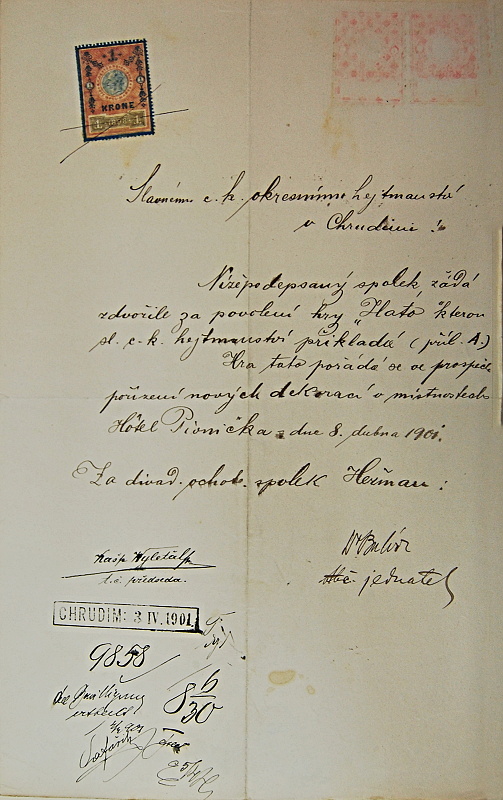 1
KRONE
1 1
Slavnému c. k. okresnímu hejtmanství
v Chrudimi!
Nížepodepsaný spolek žádá
zdvořile za povolení hry „Zlato“ kterou
sl. c. k. hejtmanství přikládá (příl. A.)
Hra tato pořádá se ve prospěch
pořízení nových dekorací v místnostech
Hôtel Pivnička - dne 8. dubna 1901.
Za divad. ochot. spolek Heřman:
t. č. předseda.
jednatel
CHRUDIM: 3 IV. 1901.
9858
8 6/30